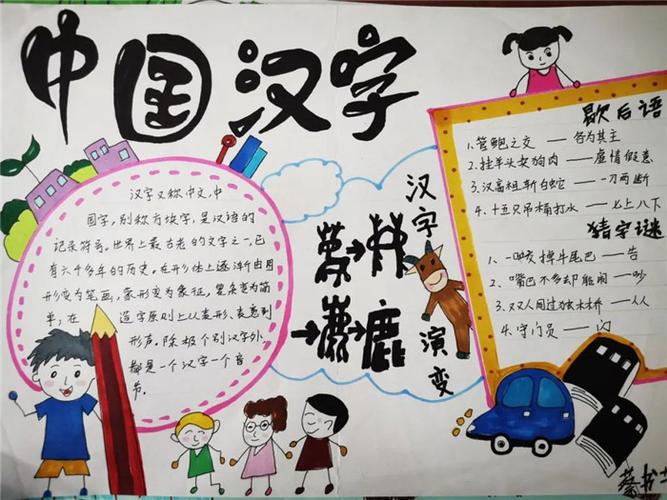 中国汉字
汉字又称中文,中
国字,别称方块字,是汉语的
记录符号。世界上最古老的文字之一,已
有六千多年的历史。在形体上逐渐由图
形变为笔画,象形变为象征,复杂变为简
单,在造字原则上从表形、表意到
形声。除极个别汉字外
都是一个汉字一个音
节。
汉字演变
鹿
歇后语
1.管鲍之交——各为其主
2.挂羊头卖狗肉——虚情假意
3.汉高祖斩白蛇——一刀两断
4.十五只吊桶打水——七上八下
猜字谜
1.一口咬掉牛尾巴——告
2.嘴巴不多却能闹——吵
3.双人同过独木桥——从
4.守门员——闪